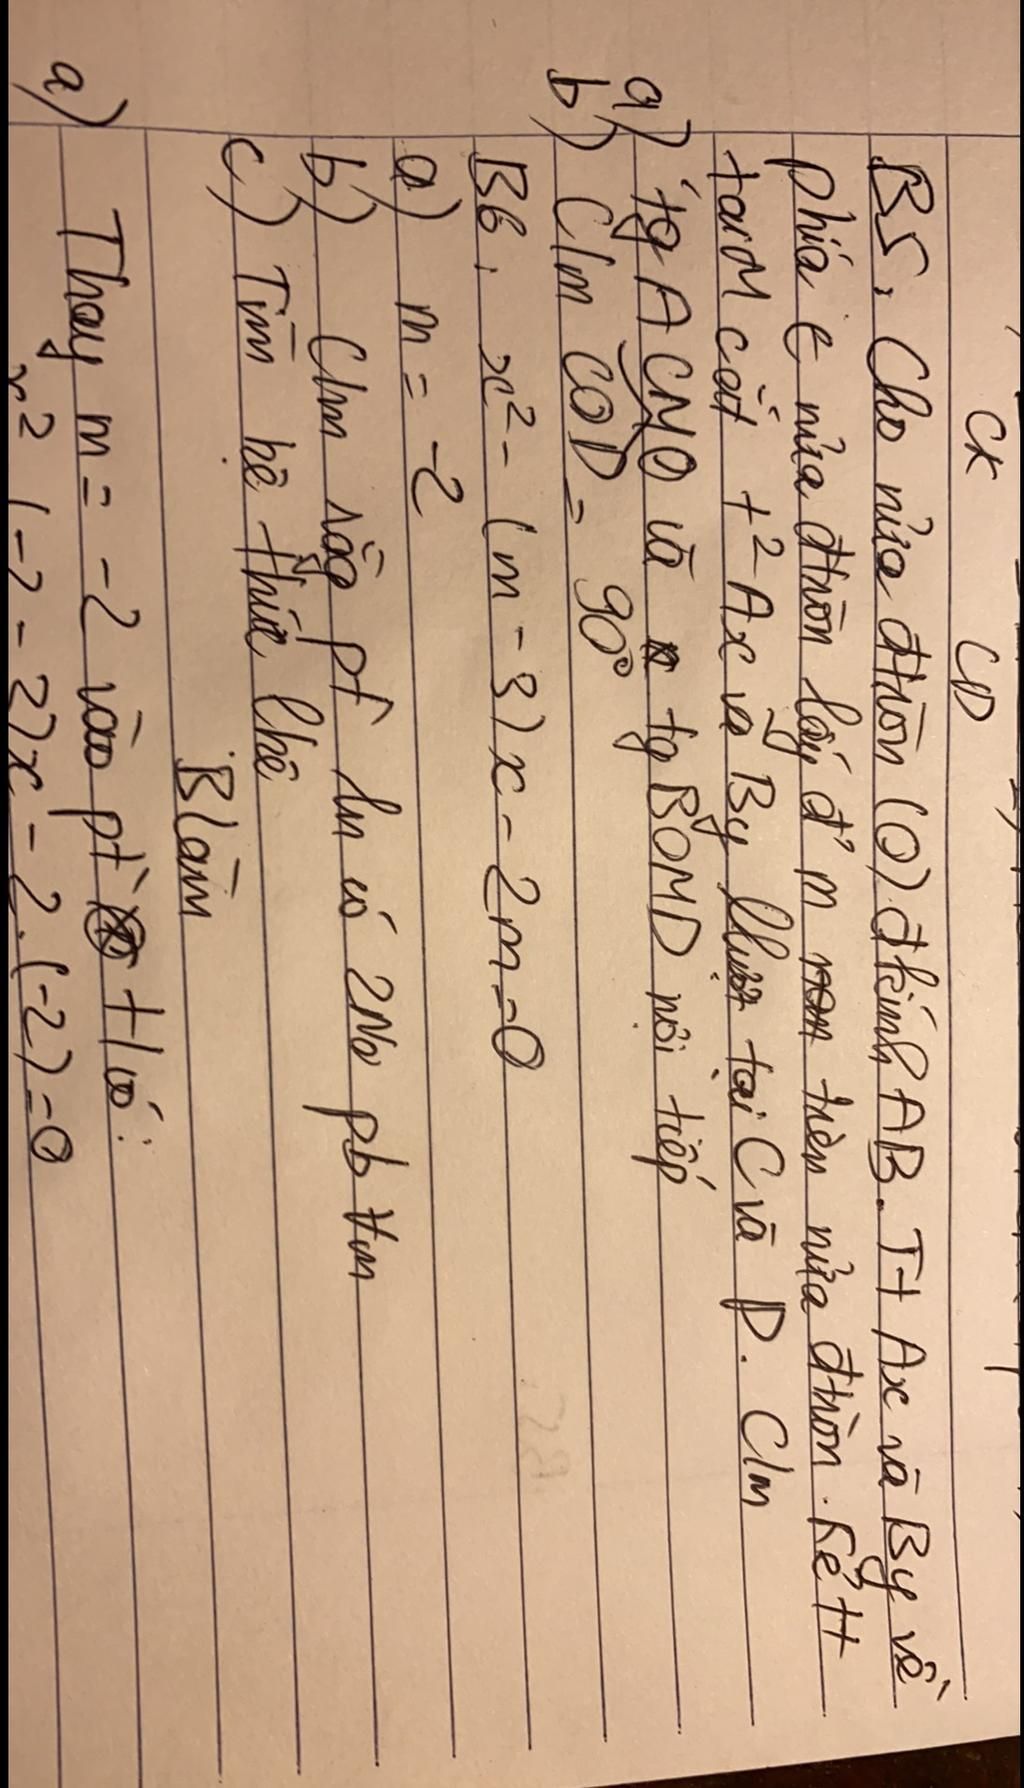 CK CD
B5, Cho nửa đtròn (O) đkính AB. Tt Ax và By về
phía € nửa đtròn lấy đ' m trên nửa đtròn. Kẻ tt
tại M cắt t² Ax và By lần lượt tại C và D. C/m
a) tg ACMO và tg BOMD nội tiếp
b) C/m COD = 90°
B6, x² - (m - 3)x - 2m = 0
a) m = -2
b) C/m rằng pt luôn có 2No pb ∀m
c) Tìm hệ thức
Blàm
a) Thay m = -2 vào pt ta có:
x² (-2 - 3)x - 2.(-2) = 0